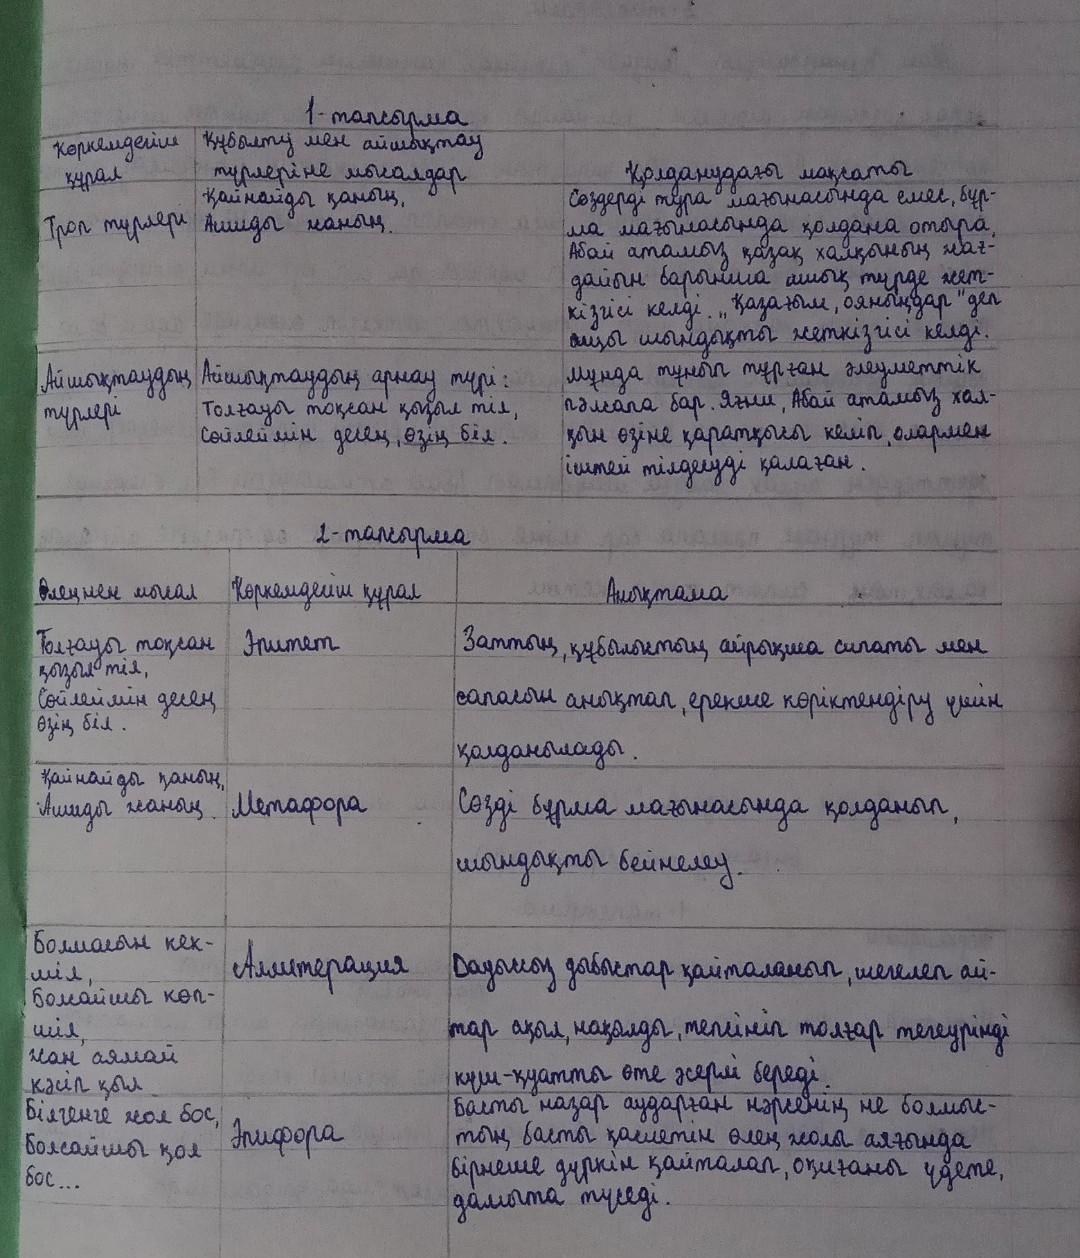 1-тапсырма
Көркемдегіш құрал
Құбылту мен айшықтау түрлеріне мысалдар
Қолданудағы мақсаты
Троп түрлері
Қайнайды қаның,
Ашиды жаның.
Сөздерді тура мағынасында емес, бұр-
ма мағынасында қолдана отыра,
Абай атамыз қазақ халқының жағ-
дайын барынша ашық түрде жет-
кізгісі келді. „Қазағым, ояныңдар" деп
ащы шындықты жеткізгісі келді.
Айшықтаудың
түрлері
Айшықтаудың арнау түрі:
Толғауы тоқсан қызыл тіл,
Сөйлеймін десең, өзің біл.
Мұнда тұнып тұрған әлеуметтік
пәлсапа бар. Яғни, Абай атамыз хал-
қын өзіне қаратқысы келіп, олармен
іштей тілдесуді қалаған.
2-тапсырма
Өлеңнен мысал
Көркемдегіш құрал
Анықтама
Толғауы тоқсан
қызыл тіл,
Сөйлеймін десең
өзің біл.
Эпитет
Заттың, құбылыстың айрықша сипаты мен
сапасын анықтап, ерекше көріктендіру үшін
қолданылады.
Қайнайды қаның,
Ашиды жаның.
Метафора
Сөзді бұрма мағынасында қолданып,
шындықты бейнелеу.
Болмасын кек-
шіл,
Болсайшы көп-
шіл,
Жан аямай
кәсіп қыл
Аллитерация
Дауыссыз дыбыстар қайталанып, шегелеп ай-
тар ақыл, нақылды, тепсініп толғар тегеурінді
күш-қуатты өте әсерлі береді.
Білгенге жол бос,
Болсайшы қол
бос...
Эпифора
Басты назар аударған нәрсенің не болмыс-
тың басты қасиетін өлең жолы аяғында
бірнеше дүркін қайталап, оқиғаны үдете,
дамыта түседі.